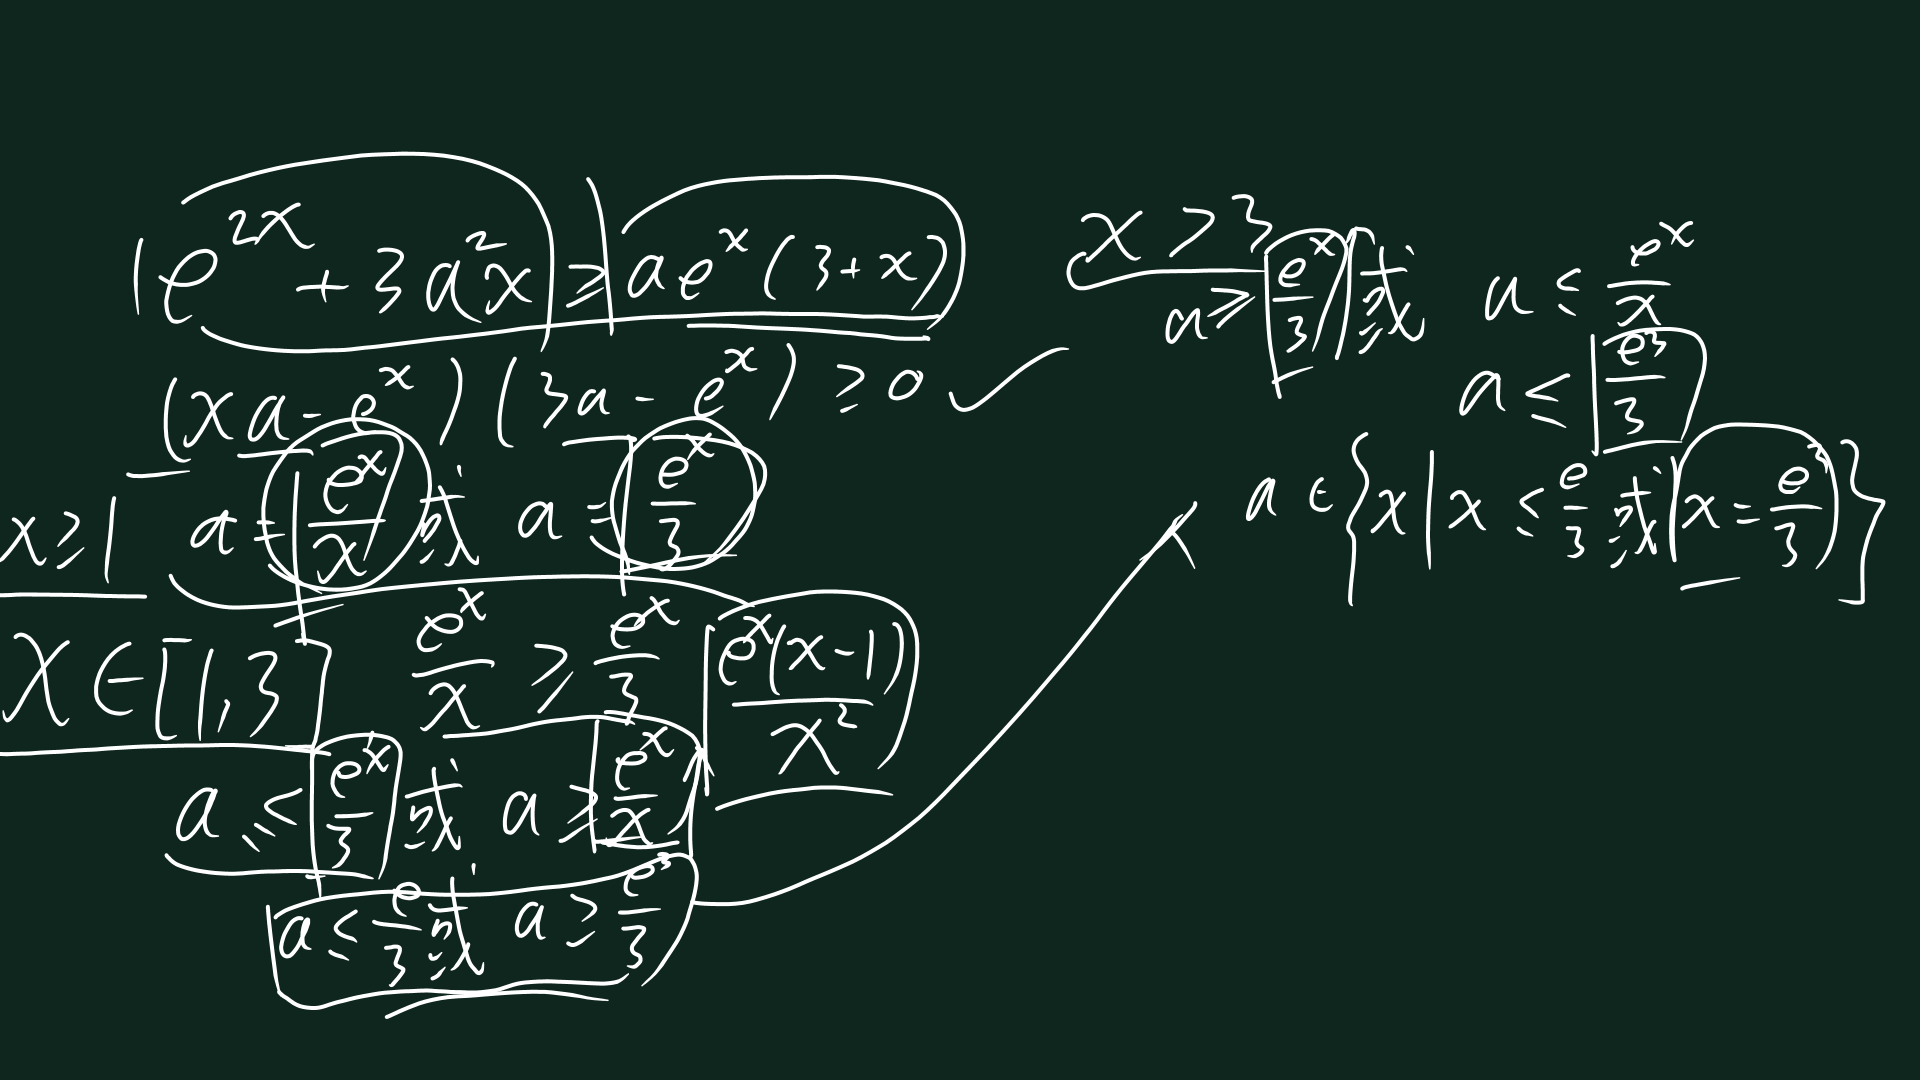 e^{2x} + 3a^2x ≥ ae^x(3+x)
(xa - e^x)(3a - e^x) ≥ 0
x ≥ 1
a = \frac{e^x}{x} 或 a = \frac{e^x}{3}
x ∈ [1,3] \frac{e^x}{x} ≥ \frac{e^x}{3} \frac{e^x(x-1)}{x^2}
a ≤ \frac{e^x}{3} 或 a ≥ \frac{e^x}{x}
a ≤ \frac{e}{3} 或 a ≥ \frac{e^3}{3}
x > 3
a ≥ \frac{e^x}{3} 或 a ≤ \frac{e^x}{x}
a ≤ \frac{e^3}{3}
a ∈ {x | x ≤ \frac{e}{3} 或 x = \frac{e^3}{3}}